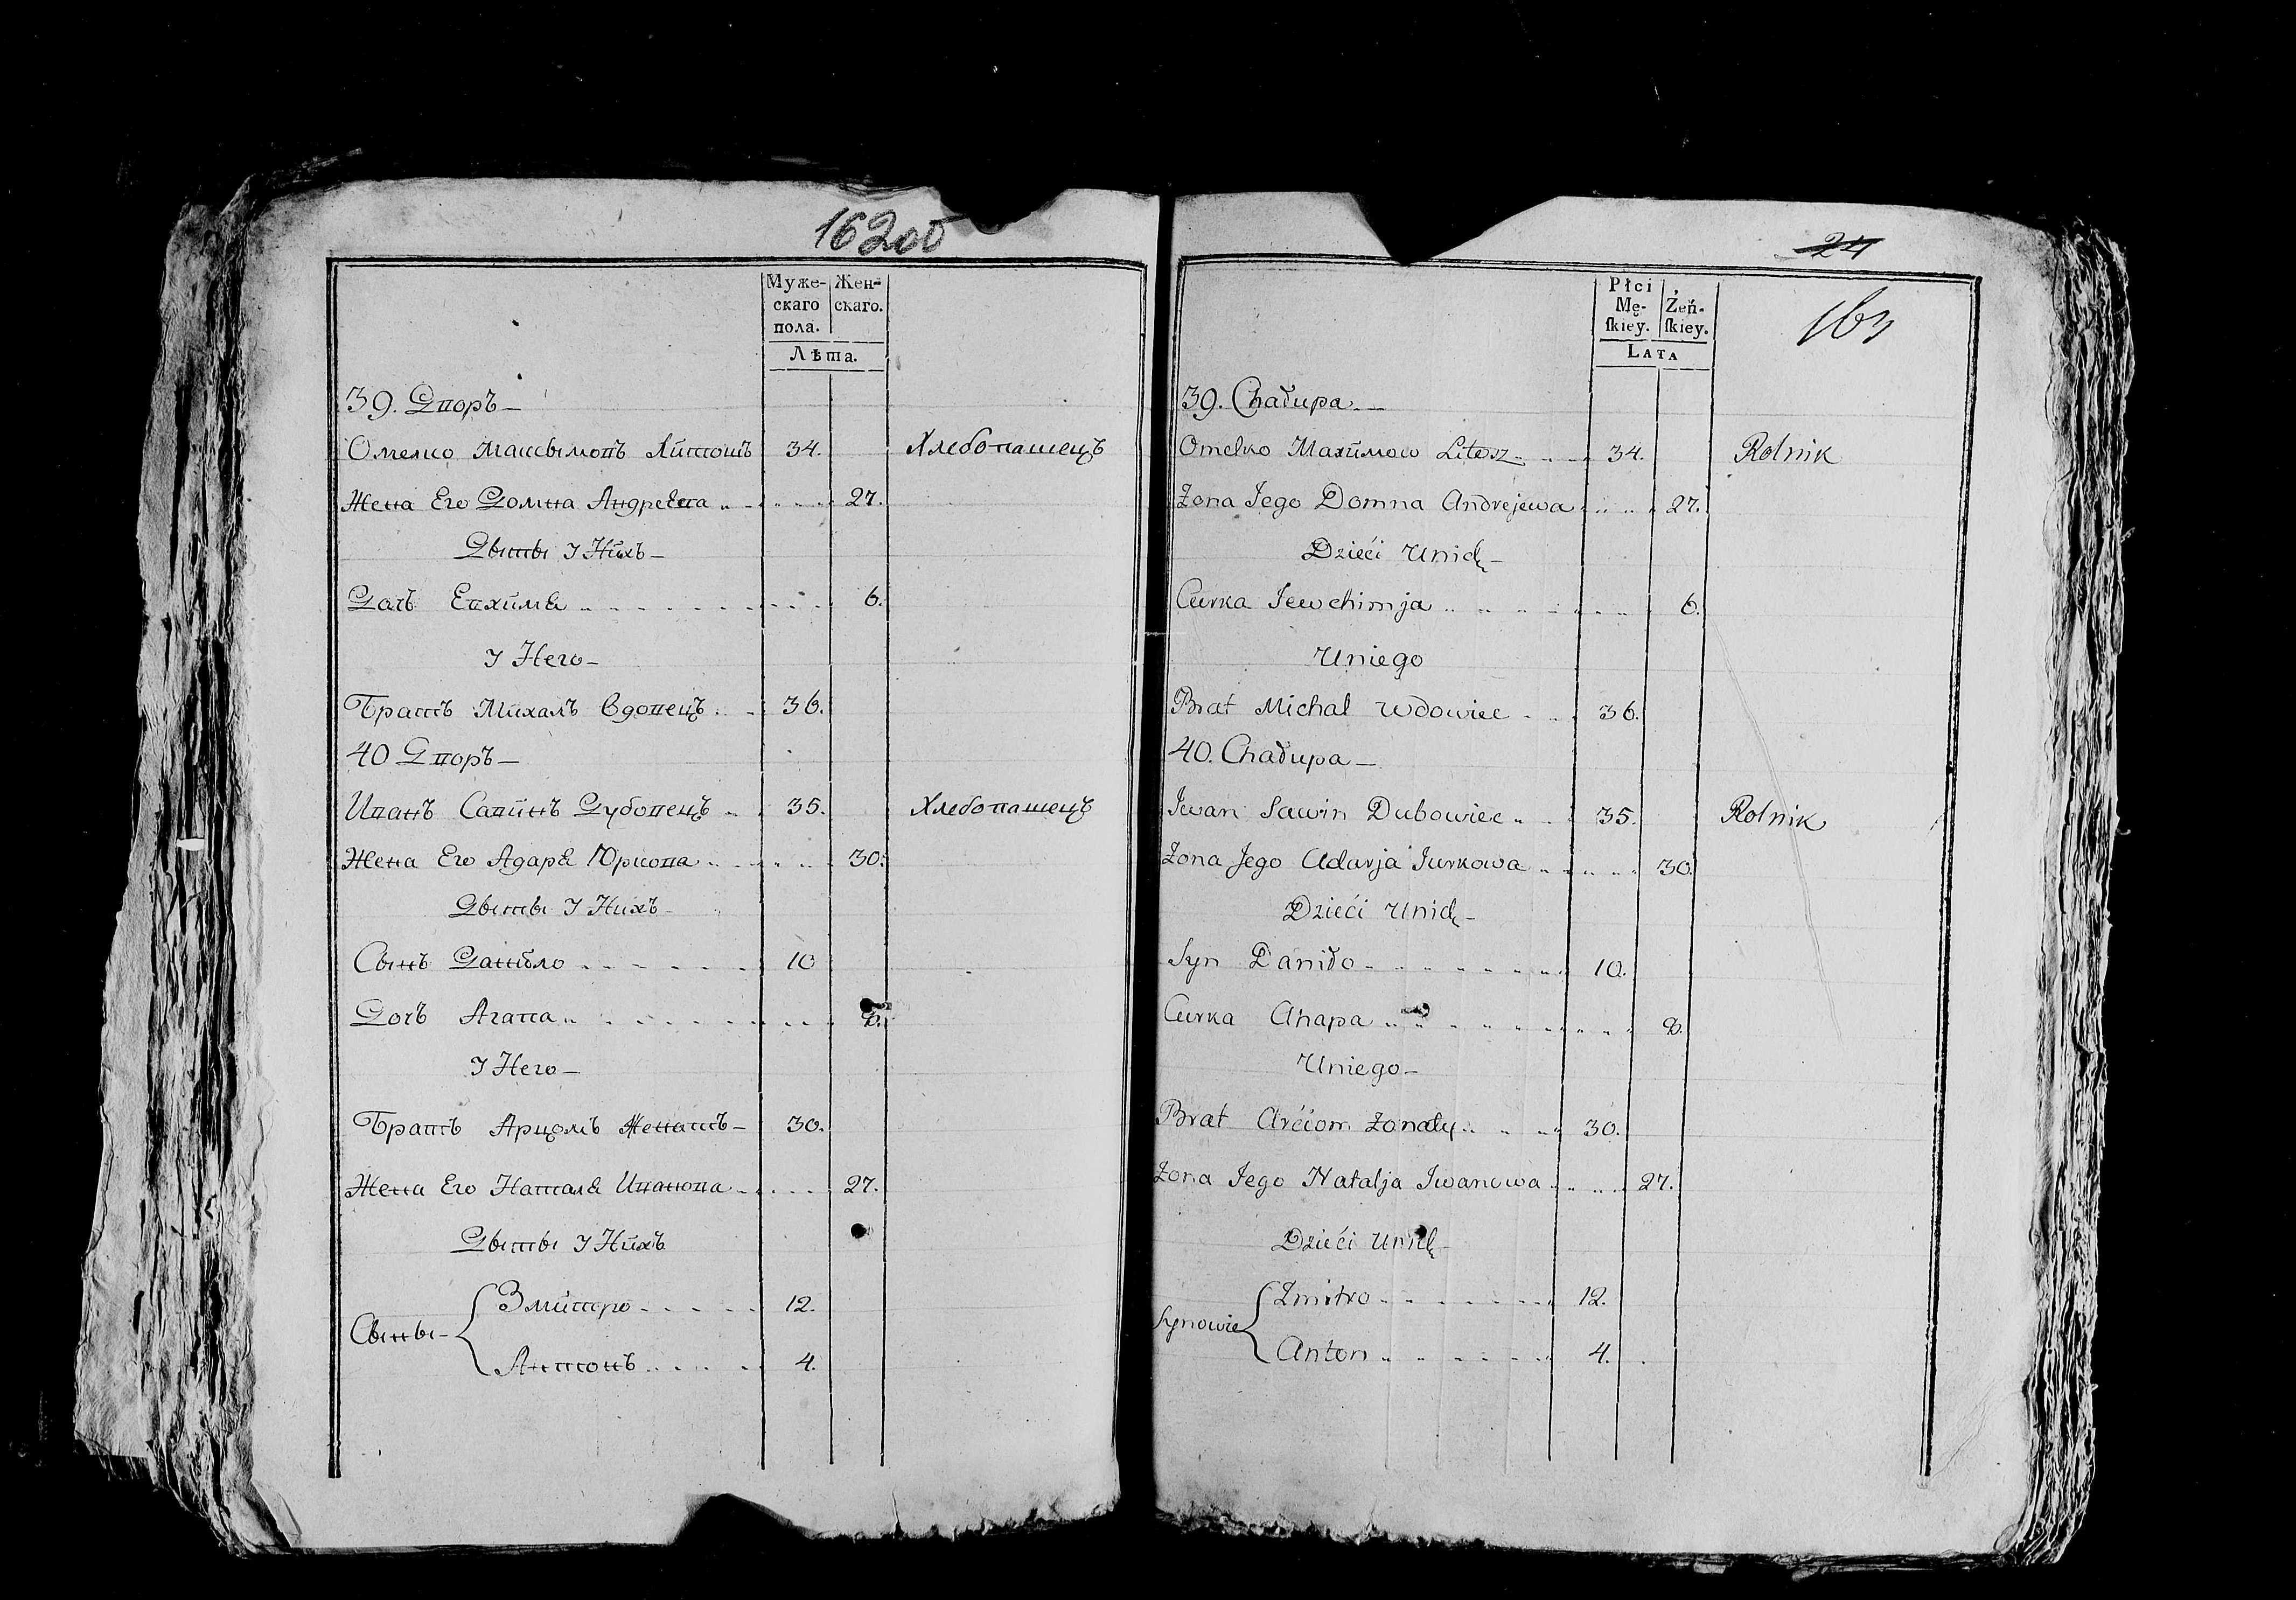 162об
Муже-
скаго
пола.
Жен-
скаго.
Лѣта.
39. Дворъ —
Омелко Максымовъ Литошъ 34. Хлебопашецъ
Жена Его Домна Андреева 27.
Дѣты У Нихъ —
Дочъ Евхимя 6.
У Него —
Братъ Михалъ Вдовецъ 36.
40 Дворъ —
Иванъ Савинъ Дубовецъ 35. Хлебопашецъ
Жена Его Адаря Юркова 30.
Дѣты У Нихъ
Сынъ Данило 10
Дочъ Агапа
У Него —
Братъ Арцомъ Женатъ — 30.
Жена Его Наталя Иванова 27.
Дѣты У Нихъ
Сыны — { Змитро 12.
Антонъ 4.
24
163
Płci
Mę-
ſkiey.
Żeń-
ſkiey.
LATA
39. Chałupa —
Omelko Maximow Litosz 34. Rolnik
Żona Jego Domna Andrejewa 27.
Dzieci Unich —
Curka Jewchimja 6.
Uniego
Brat Michal Wdowiec 36.
40. Chałupa —
Iwan Sawin Dubowiec 35. Rolnik
Żona Jego Adarja Jurkowa 30.
Dzieci Unich —
Syn Daniło 10.
Curka Ahapa
Uniego —
Brat Arciom Żonaty 30.
Żona Jego Natalja Iwanowa 27.
Dzieci Unich —
Synowie { Zmitro 12.
Anton 4.